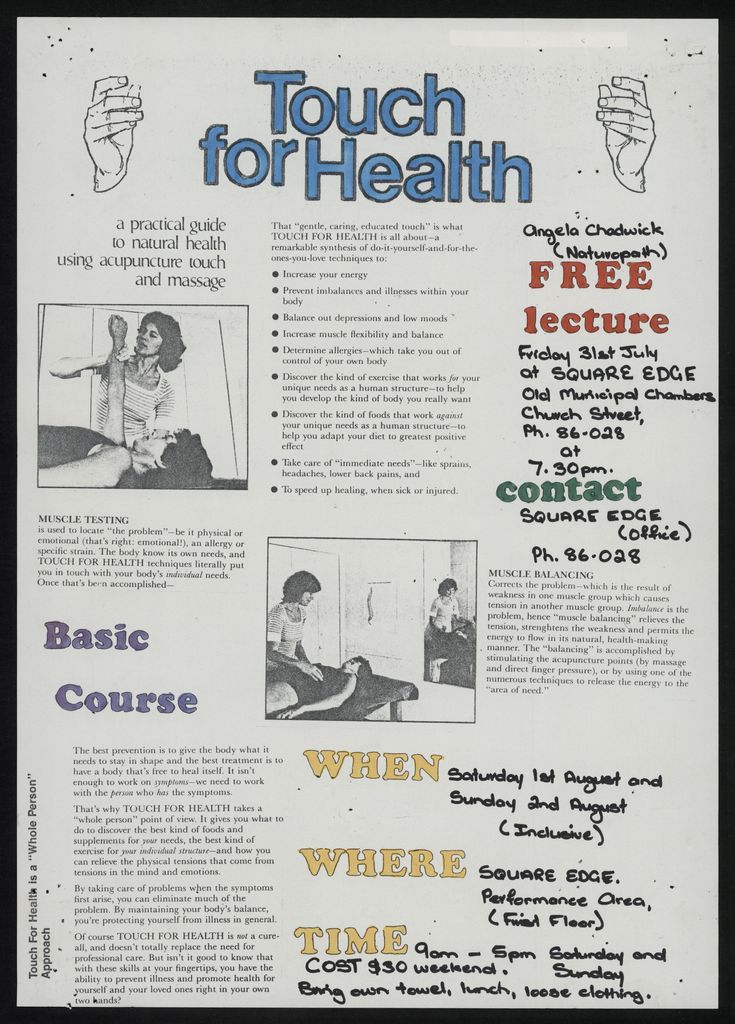 Touch
for Health
a practical guide
to natural health
using acupuncture touch
and massage
That "gentle, caring, educated touch" is what
TOUCH FOR HEALTH is all about—a
remarkable synthesis of do-it-yourself-and-for-the-
ones-you-love techniques to:
● Increase your energy
● Prevent imbalances and illnesses within your
body
● Balance out depressions and low moods
● Increase muscle flexibility and balance
● Determine allergies—which take you out of
control of your own body
● Discover the kind of exercise that works for your
unique needs as a human structure—to help
you develop the kind of body you really want
● Discover the kind of foods that work against
your unique needs as a human structure—to
help you adapt your diet to greatest positive
effect
● Take care of "immediate needs"—like sprains,
headaches, lower back pains, and
● To speed up healing, when sick or injured.
Angela Chadwick
(Naturopath)
FREE
lecture
Friday 31st July
at SQUARE EDGE
Old Municipal Chambers
Church Street,
Ph. 86-028
at
7.30pm.
contact
SQUARE EDGE
(Office)
Ph. 86-028
MUSCLE TESTING
is used to locate "the problem"—be it physical or
emotional (that's right: emotional!), an allergy or
specific strain. The body know its own needs, and
TOUCH FOR HEALTH techniques literally put
you in touch with your body's individual needs.
Once that's been accomplished—
MUSCLE BALANCING
Corrects the problem—which is the result of
weakness in one muscle group which causes
tension in another muscle group. Imbalance is the
problem, hence "muscle balancing" relieves the
tension, strenghtens the weakness and permits the
energy to flow in its natural, health-making
manner. The "balancing" is accomplished by
stimulating the acupuncture points (by massage
and direct finger pressure), or by using one of the
numerous techniques to release the energy to the
"area of need."
Basic
Course
The best prevention is to give the body what it
needs to stay in shape and the best treatment is to
have a body that's free to heal itself. It isn't
enough to work on symptoms—we need to work
with the person who has the symptoms.
That's why TOUCH FOR HEALTH takes a
"whole person" point of view. It gives you what to
do to discover the best kind of foods and
supplements for your needs, the best kind of
exercise for your individual structure—and how you
can relieve the physical tensions that come from
tensions in the mind and emotions.
By taking care of problems when the symptoms
first arise, you can eliminate much of the
problem. By maintaining your body's balance,
you're protecting yourself from illness in general.
Of course TOUCH FOR HEALTH is not a cure-
all, and doesn't totally replace the need for
professional care. But isn't it good to know that
with these skills at your fingertips, you have the
ability to prevent illness and promote health for
yourself and your loved ones right in your own
two hands?
Touch For Health is a "Whole Person"
Approach
WHEN Saturday 1st August and
Sunday 2nd August
(Inclusive)
WHERE SQUARE EDGE.
Performance Area,
(First Floor)
TIME 9am — 5pm Saturday and
Sunday
COST $30 weekend.
Bring own towel, lunch, loose clothing.